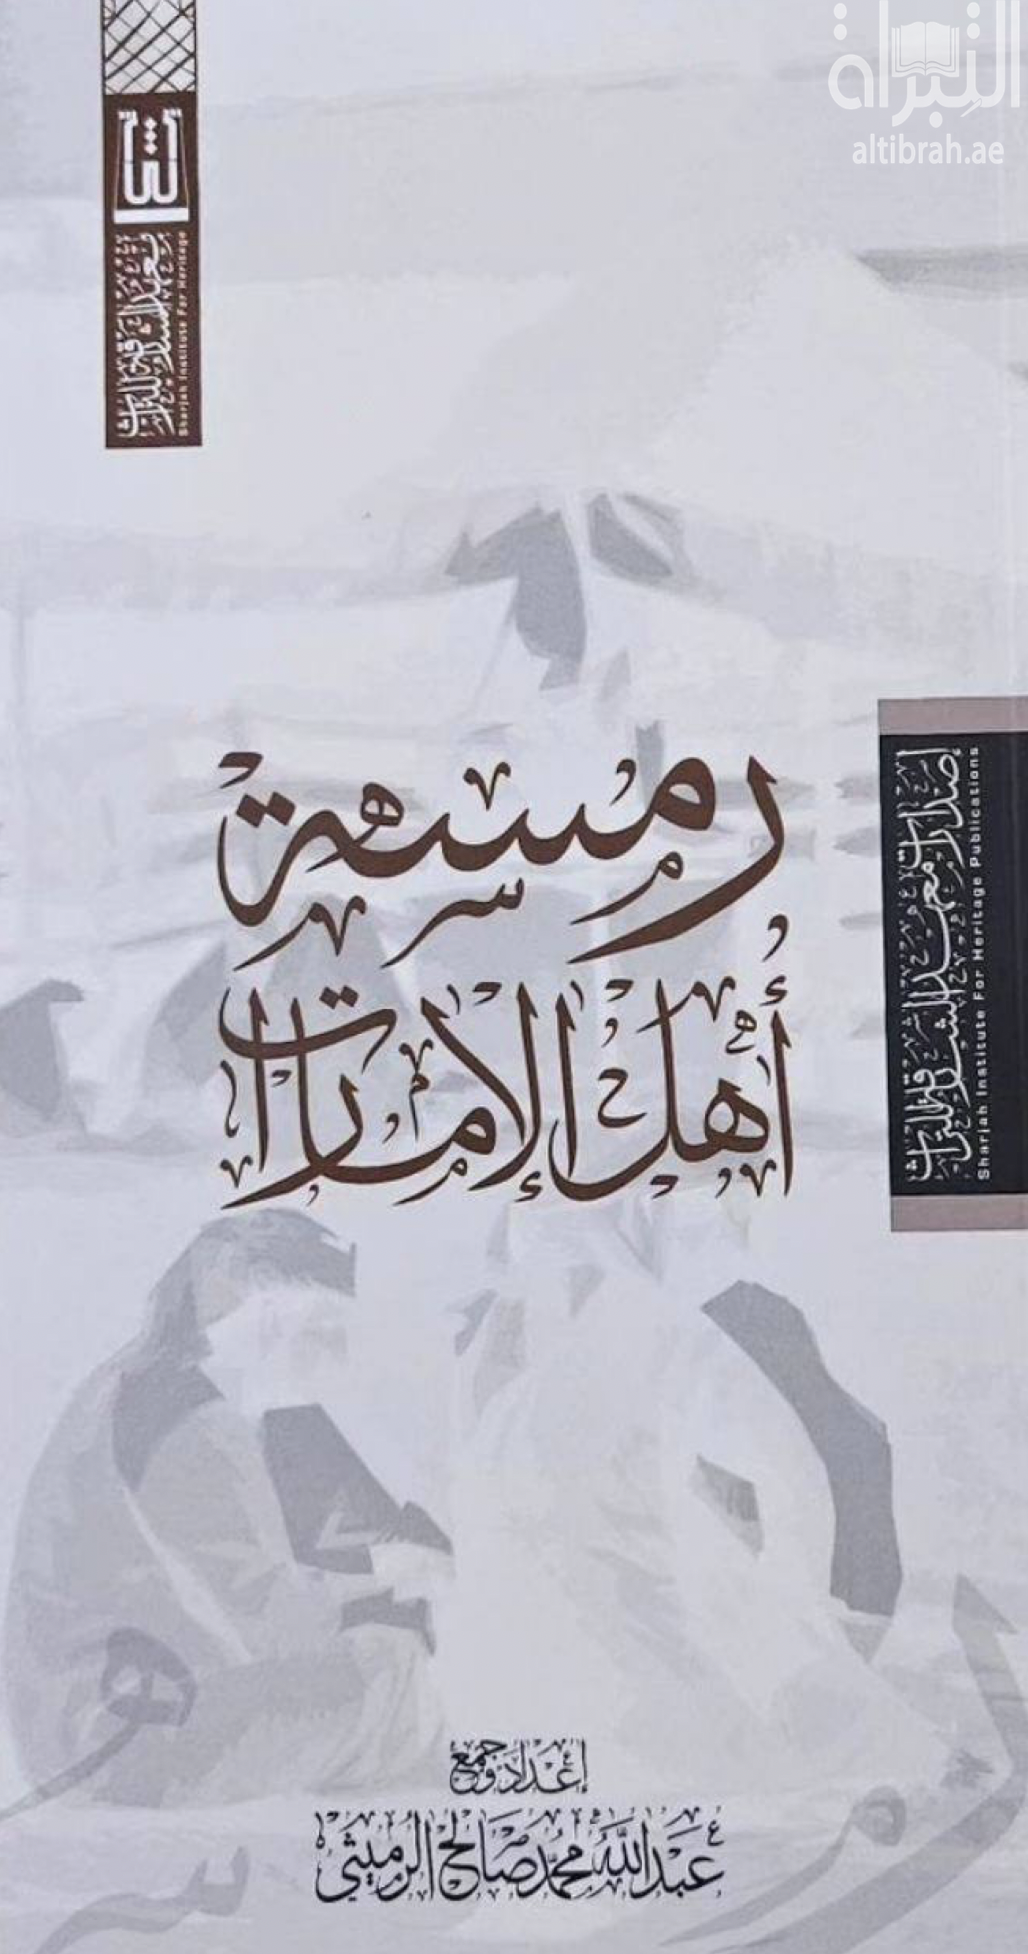 التبراة
altibrah.ae
معهد الشارقة للتراث
Sharjah Institute For Heritage
رمسة
أهل الإمارات
إصدارات معهد الشارقة للتراث
Sharjah Institute For Heritage Publications
إعداد وجمع
عبدالله محمد صالح الرميثي